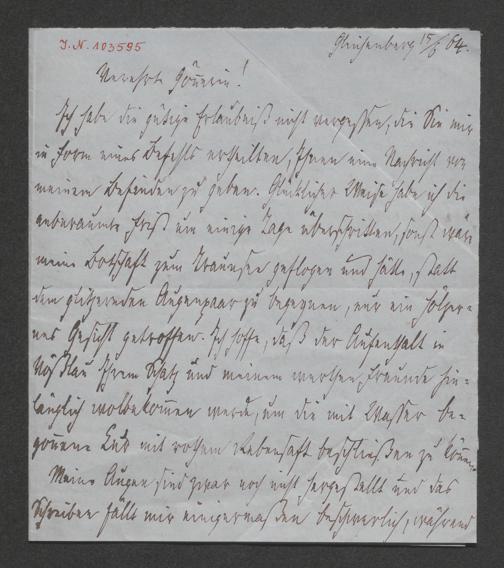 J.N. 103595
Gleichenberg 15/6 64.
Verehrte Gönnerin!
Ich habe die gütige Erlaubniß nicht vergessen, die Sie mir
in Form eines Befehls ertheilten, Ihnen eine Nachricht von
meinem Befinden zu geben. Glücklicher Weise habe ich die
anberaumte Frist um einige Tage überschritten, sonst wäre
meine Botschaft zum Traunsee geflogen und hätte, statt
dem glitzernden Augenpaar zu begegnen, nur ein hölzer-
nes Gesicht getroffen. Ich hoffe, daß der Aufenthalt in
Vöslau Ihrem Schatz und meinem werthen Freunde hin-
länglich wolbekommen werde, um die mit Wasser be-
gonnene Kur mit rothem Rebensaft beschließen zu können.
Meine Augen sind zwar noch nicht hergestellt und das
Schreiben fällt mir einigermaßen beschwerlich, während